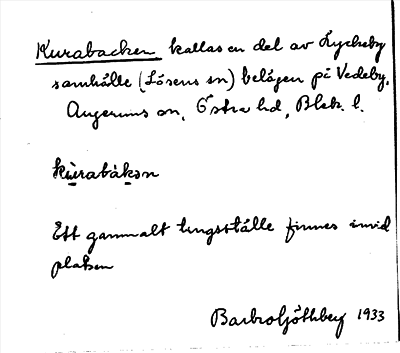 Kurabacken kallas en del av Lyckeby
samhälle (Lösens sn) belägen på Vedeby,
Augerums sn, Östra hd, Blek. l.
kùrabákən
Ett gammalt tingsställe finnes invid
platsen
Barbro Göthberg 1933